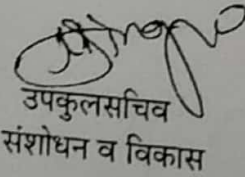 उपकुलसचिव
संशोधन व विकास